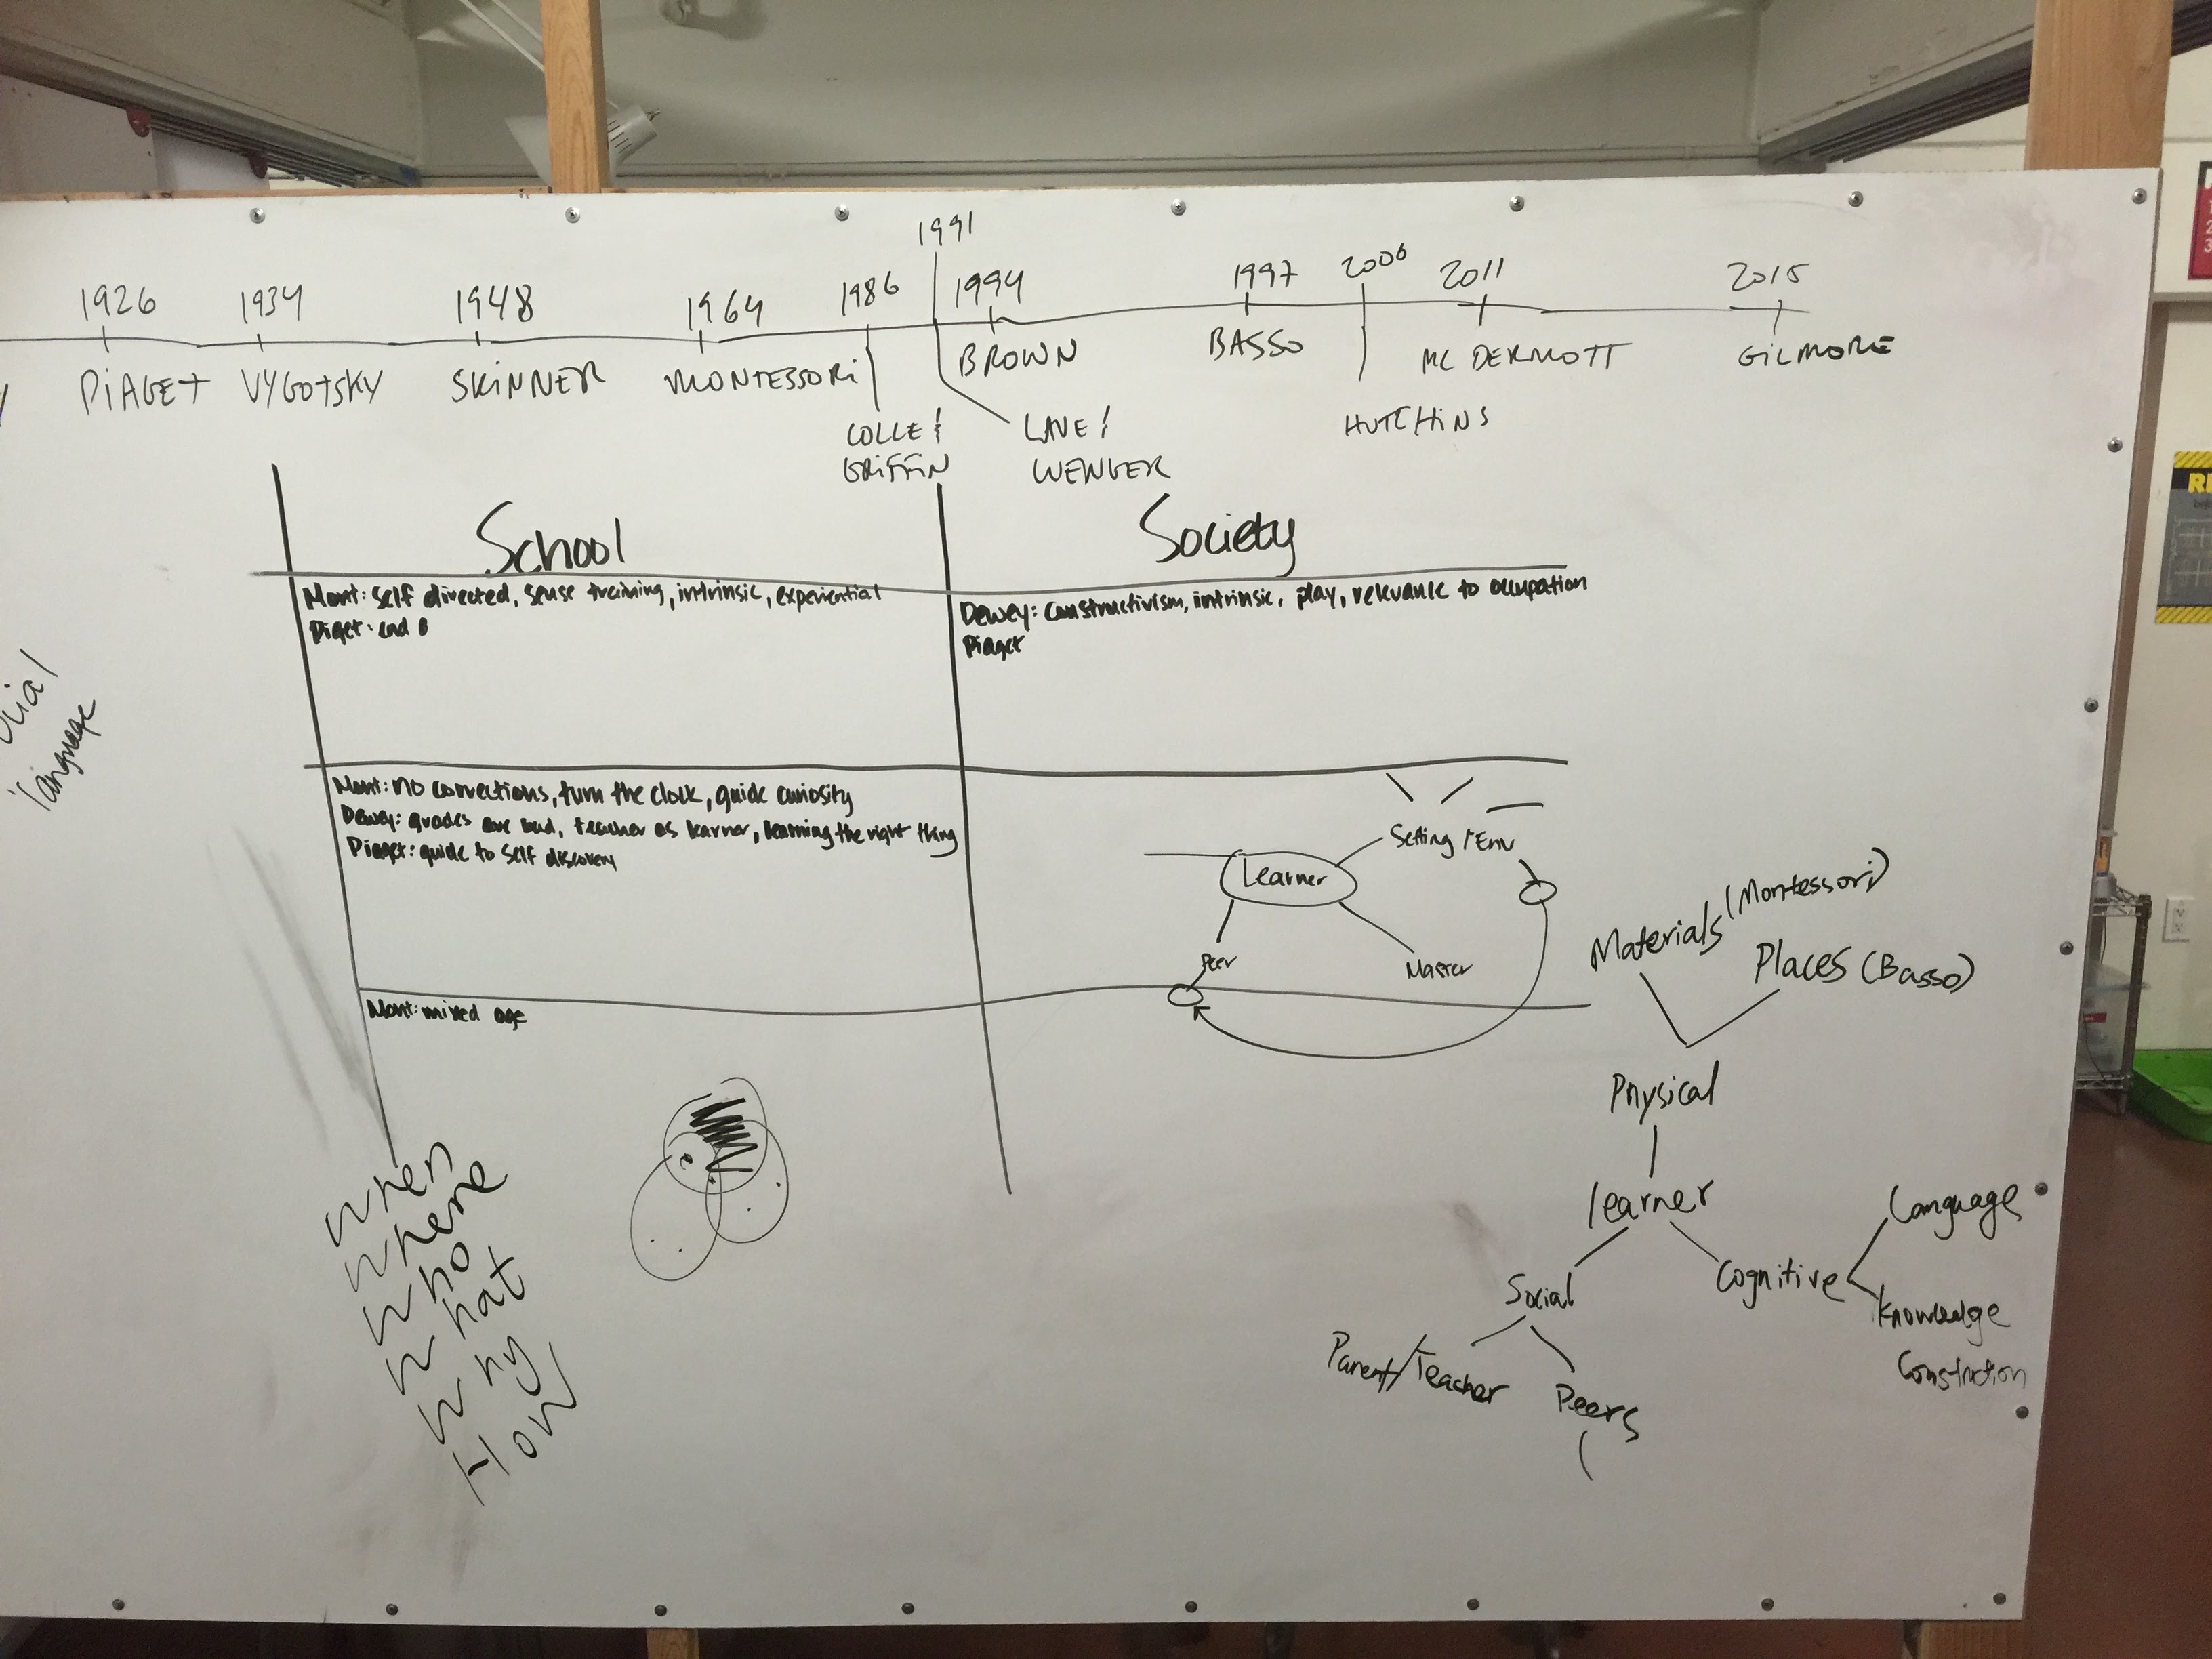 1991
1926 1934 1948 1964 1986 1994 1997 2000 2011 2015
PIAGET VYGOTSKY SKINNER MONTESSORI BROWN BASSO MC DERMOTT GILMORE
COLLE & GRIFFIN
LAVE & WENGER
HUTCHINS
School Society
Mont: self directed, sense training, intrinsic, experiential
Piget: end
Dewey: constructivism, intrinsic, play, relevance to occupation
Piaget
language
Mont: no corrections, turn the clock, guide curiosity
Dewey: grades are bad, teacher as learner, learning the right thing
Piaget: guide to self discovery
Setting / Env
Learner
Peer Master
Mont: mixed age
Materials (Montessori)
Places (Basso)
Physical
learner
Social
Cognitive
Language
Knowledge
Construction
Parent/Teacher
Peers
When
Where
Who
What
Why
How